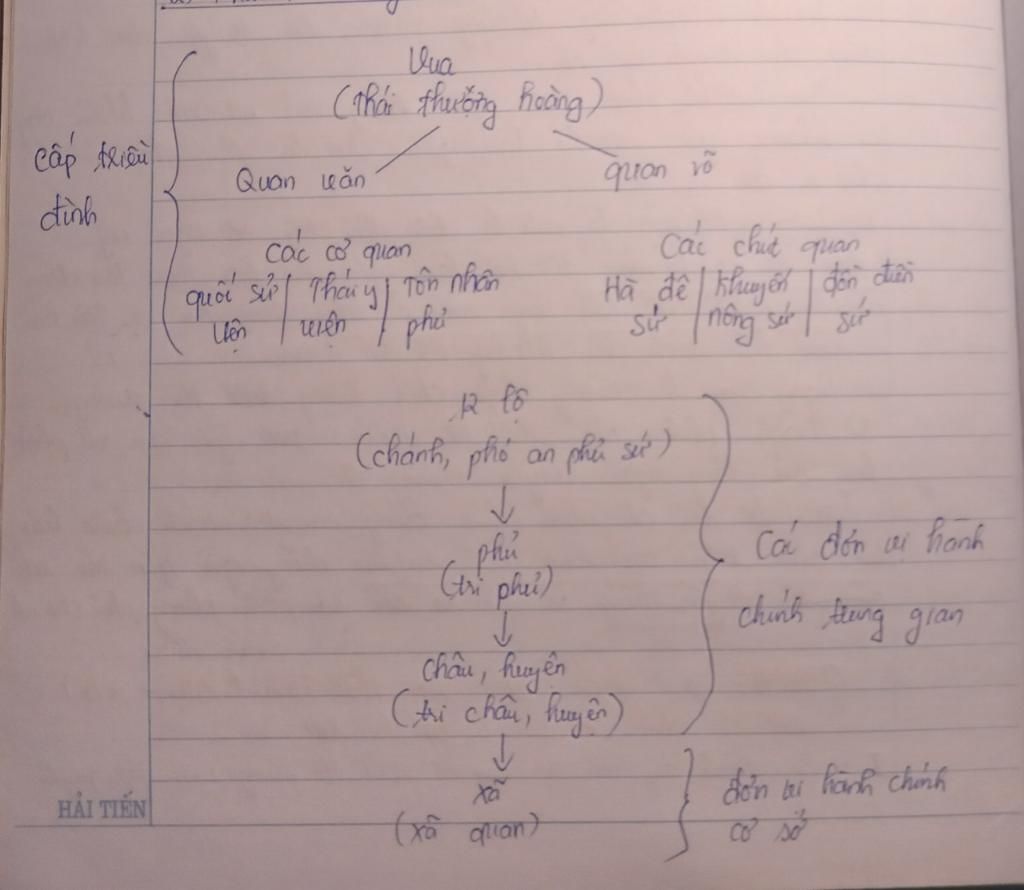 Vua
(Thái thượng hoàng)
Cấp triều
đình
Quan văn quan võ
Các cơ quan Các chức quan
quốc sử | Thái y | Tôn nhân Hà đê | Khuyến | đồn điền
viện | viện | phủ sứ | nông sứ | sứ
12 lộ
(chánh, phó an phủ sứ)
phủ
(tri phủ)
Các đơn vị hành
chính trung gian
châu, huyện
(tri châu, huyện)
xã
(xã quan)
đơn vị hành chính
cơ sở
HẢI TIẾN